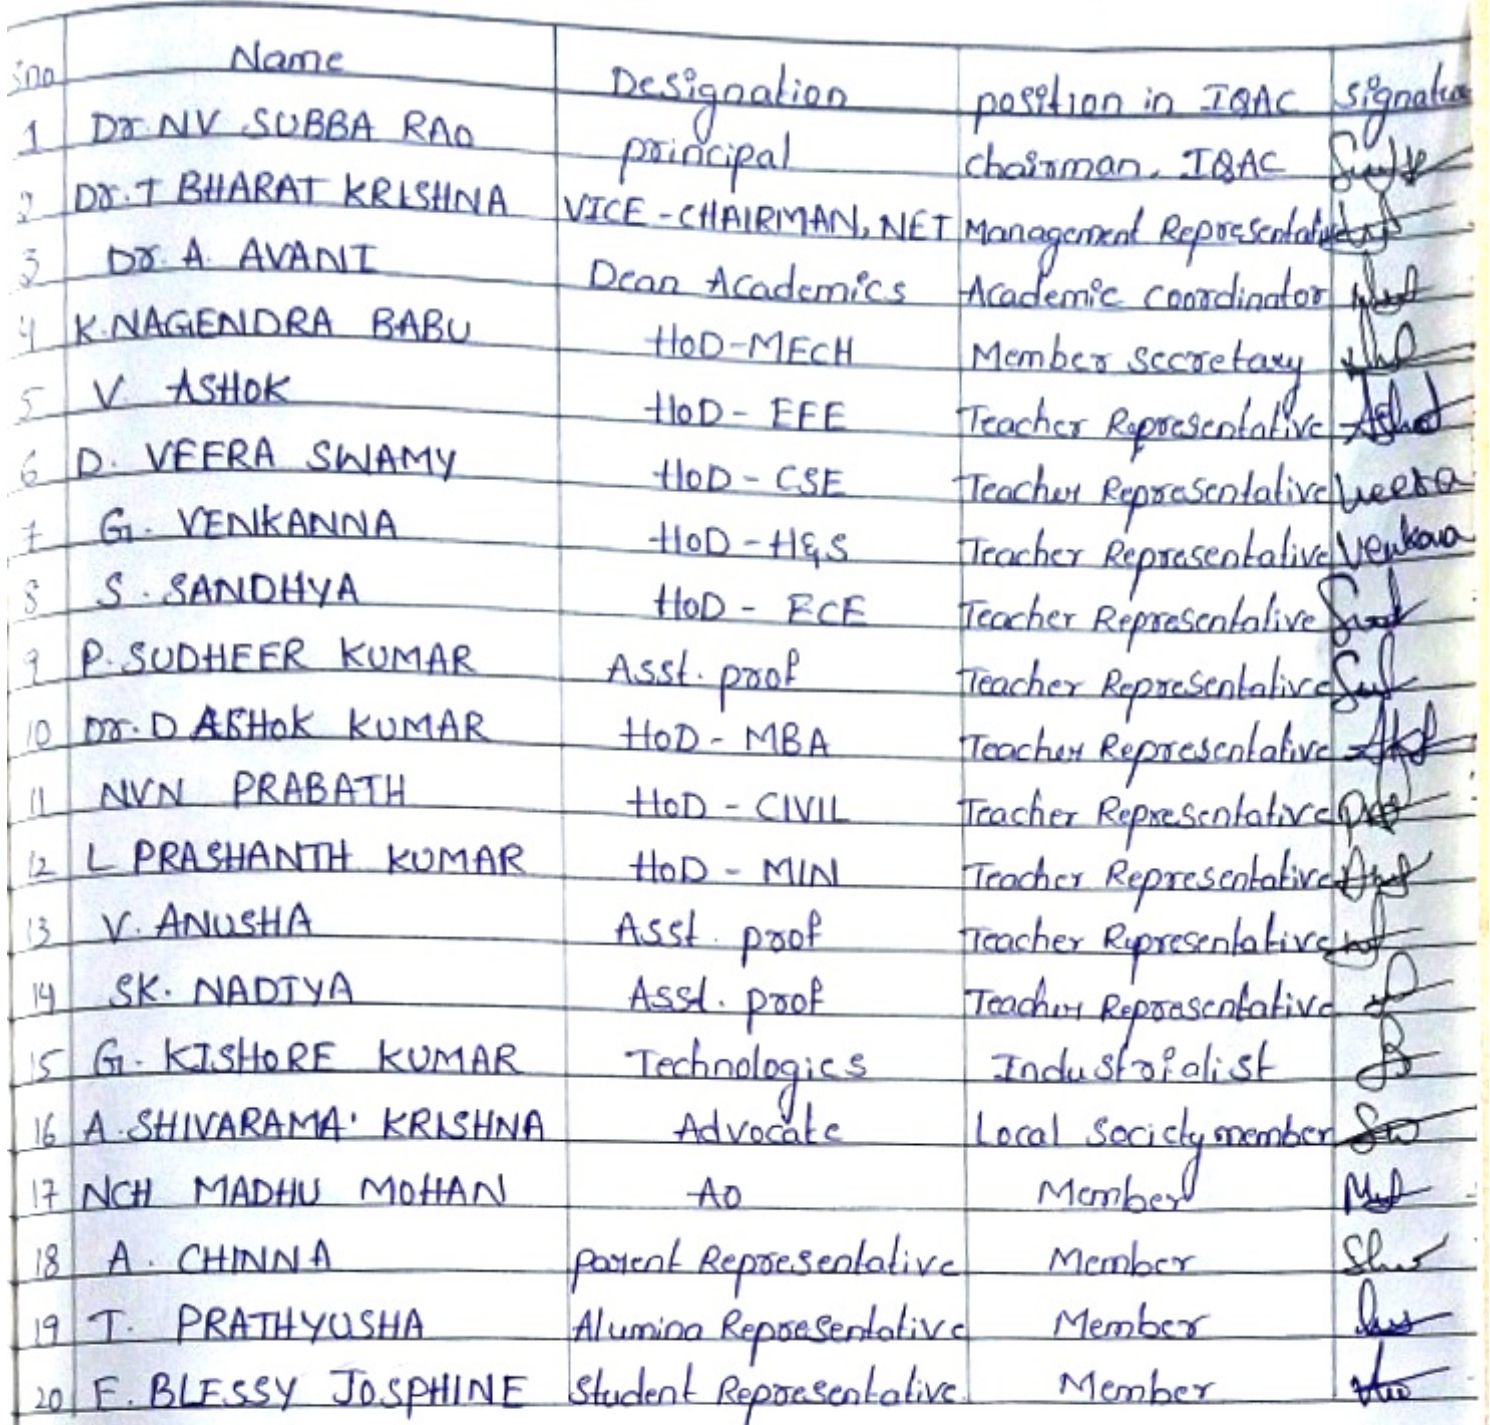 Sno Name Designation position in IQAC signature
1 Dr. NV SUBBA RAO principal chairman, IQAC
2 Dr. T BHARAT KRISHNA VICE-CHAIRMAN, NET Management Representative
3 Dr. A. AVANI Dean Academics Academic coordinator
4 K.NAGENDRA BABU HOD-MECH Member secretary
5 V. ASHOK HOD-EEE Teacher Representative Ashok
6 D. VEERA SWAMY HOD-CSE Teacher Representative Veera
7 G. VENKANNA HOD-H&S Teacher Representative Venkanna
8 S. SANDHYA HOD- ECE Teacher Representative
9 P. SUDHEER KUMAR Asst. prof Teacher Representative
10 Dr. D ASHOK KUMAR HOD-MBA Teacher Representative
11 NVN PRABATH HOD - CIVIL Teacher Representative
12 L PRASHANTH KUMAR HOD - MIN Teacher Representative
13 V. ANUSHA Asst. prof Teacher Representative
14 SK. NADIYA Asst. prof Teacher Representative
15 G. KISHORE KUMAR Technologies Industrialist
16 A. SHIVARAMA KRISHNA Advocate Local Society member
17 NCH MADHU MOHAN AO Member
18 A. CHINNA parent Representative Member
19 T. PRATHYUSHA Alumina Representative Member
20 E. BLESSY JOSPHINE Student Representative Member